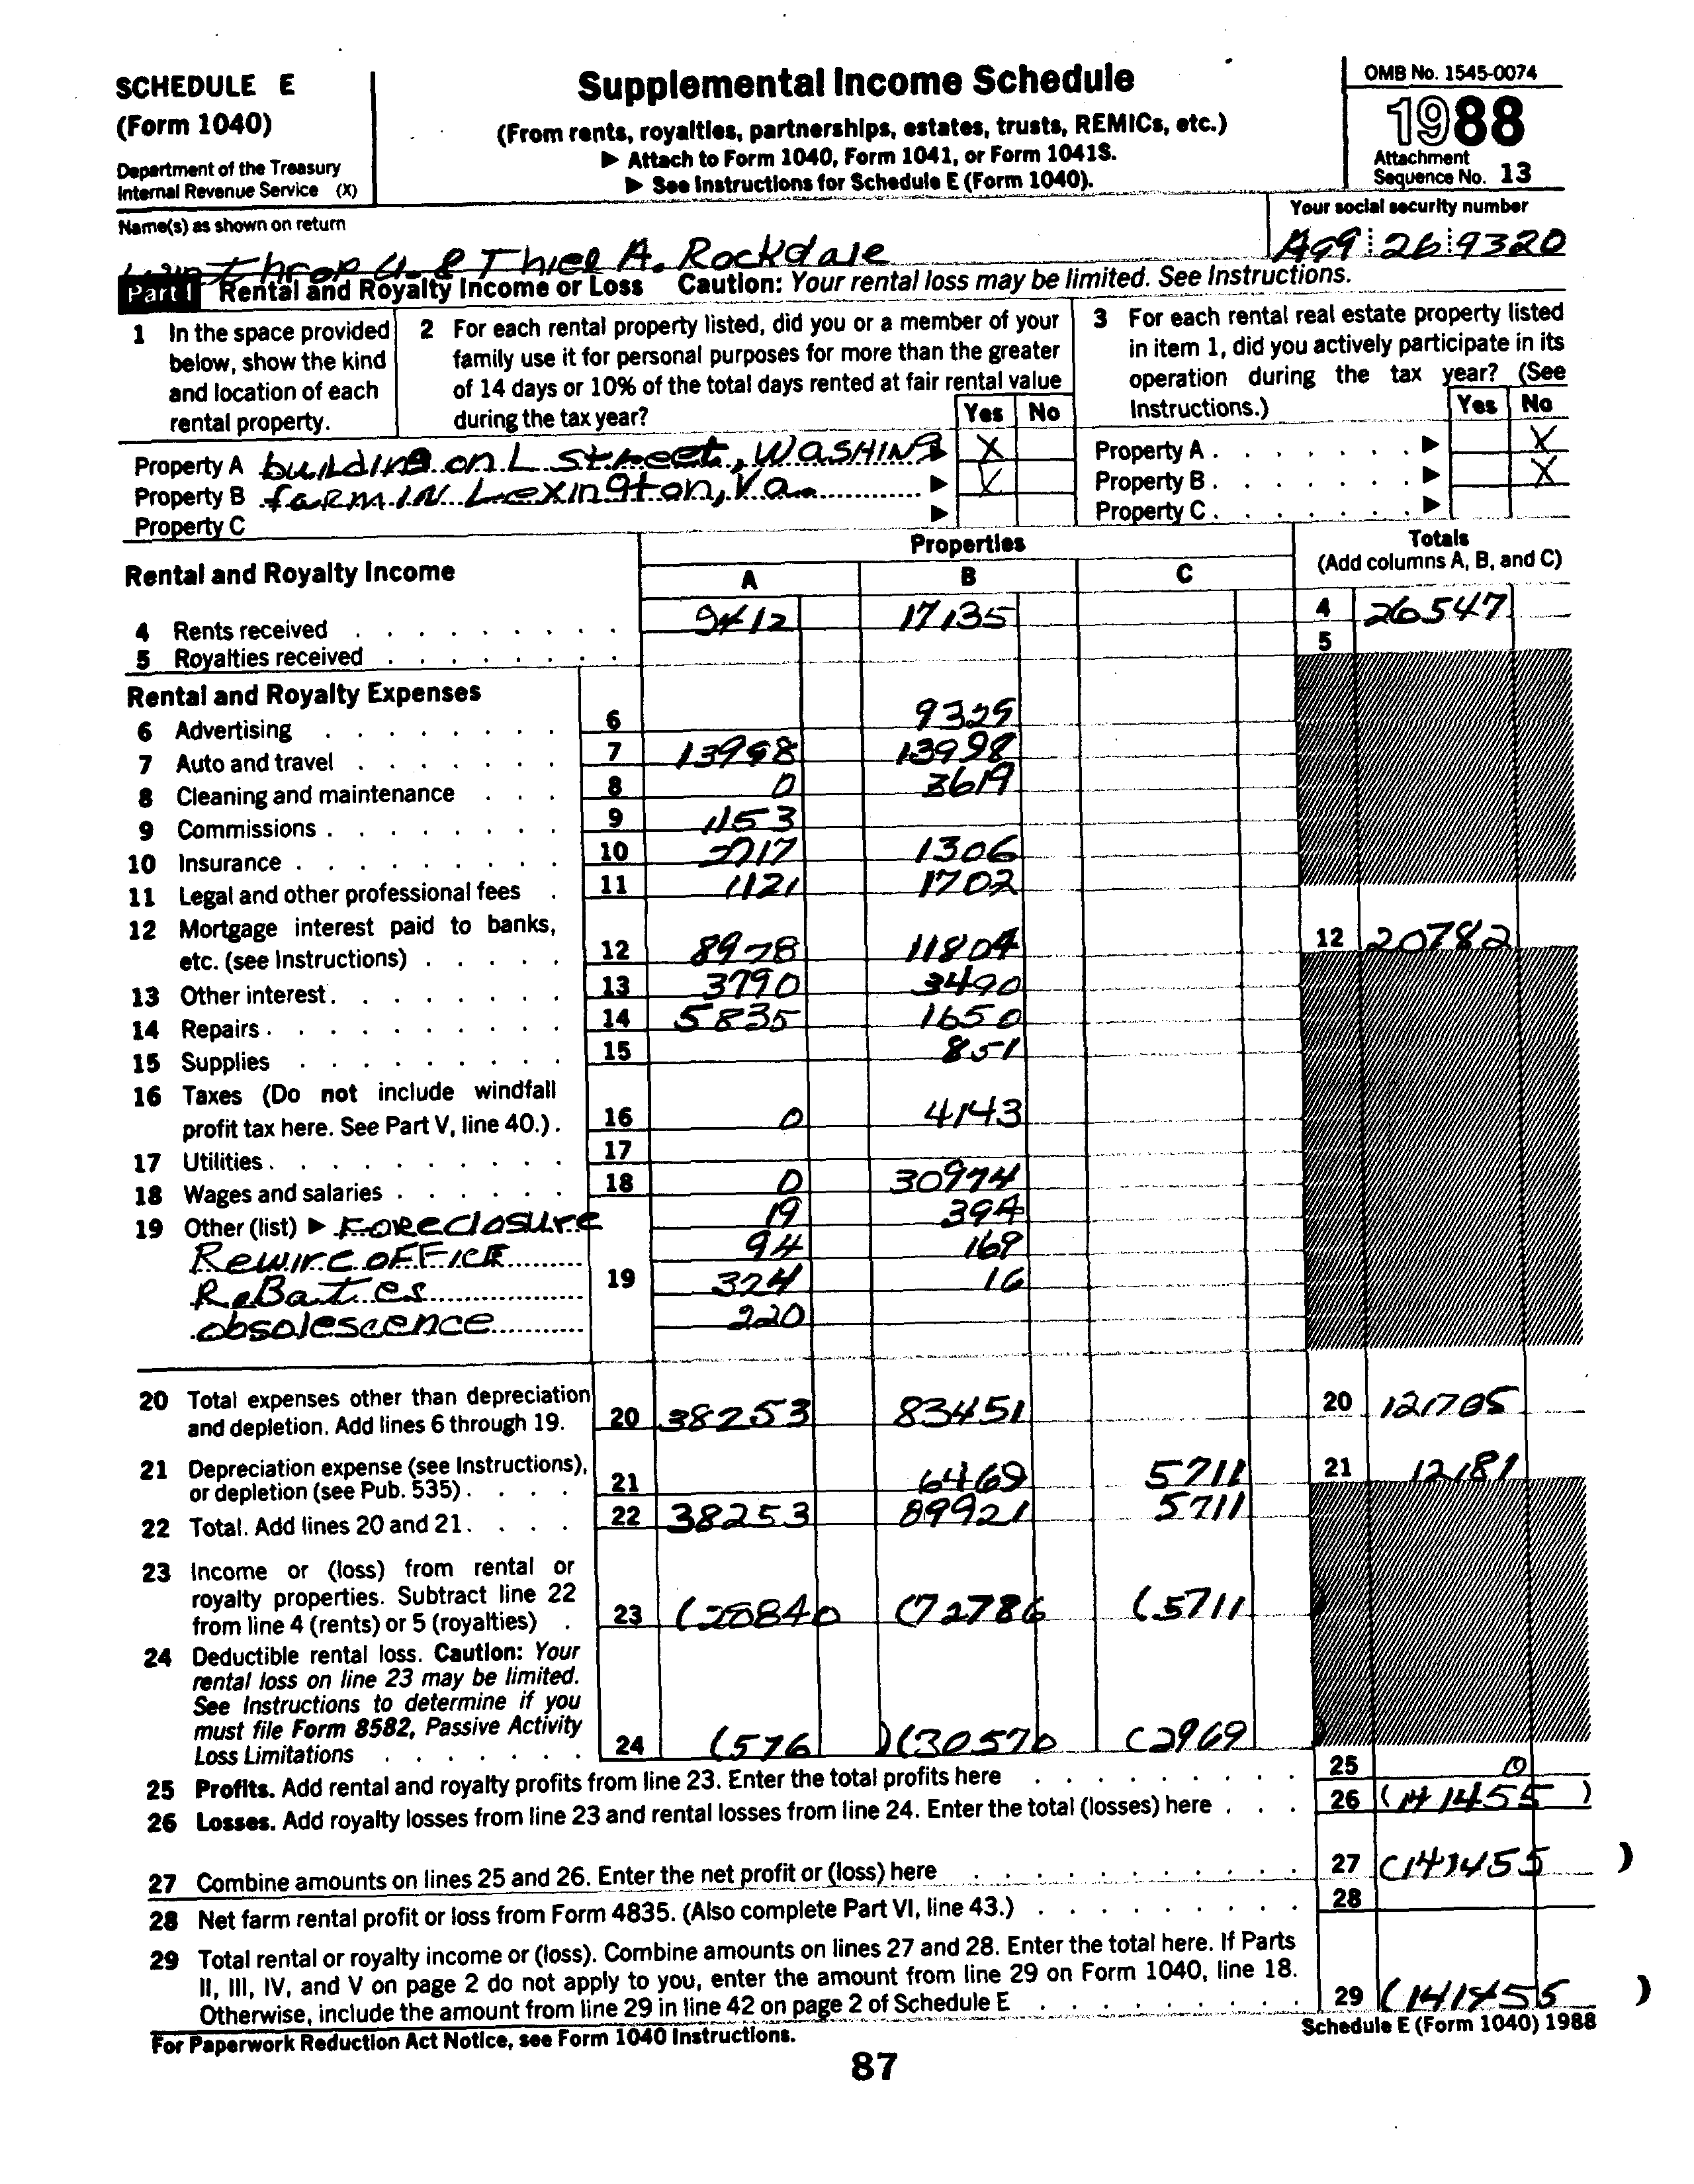 SCHEDULE E
(Form 1040)
Department of the Treasury
Internal Revenue Service (X)
Supplemental Income Schedule
(From rents, royalties, partnerships, estates, trusts, REMICs, etc.)
▶ Attach to Form 1040, Form 1041, or Form 1041S.
▶ See Instructions for Schedule E (Form 1040).
OMB No. 1545-0074
1988
Attachment
Sequence No. 13
Name(s) as shown on return
Your social security number
& Thiel A. Rockdale
26 9320
Part I Rental and Royalty Income or Loss Caution: Your rental loss may be limited. See Instructions.
1 In the space provided below, show the kind and location of each rental property.
2 For each rental property listed, did you or a member of your family use it for personal purposes for more than the greater of 14 days or 10% of the total days rented at fair rental value during the tax year?
Yes No
3 For each rental real estate property listed in item 1, did you actively participate in its operation during the tax year? (See Instructions.)
Yes No
Property A building on L Street, WASHING ▶ X
Property A ▶ X
Property B farm IN Lexington, Va. ▶ X
Property B ▶ X
Property C ▶
Property C ▶
Rental and Royalty Income
Properties
A B C
Totals
(Add columns A, B, and C)
4 Rents received 9412 17135 4 26547
5 Royalties received 5
Rental and Royalty Expenses
6 Advertising 6 9325
7 Auto and travel 7 13998 13998
8 Cleaning and maintenance 8 0 3619
9 Commissions 9 1153
10 Insurance 10 2717 1306
11 Legal and other professional fees 11 1121 1702
12 Mortgage interest paid to banks,
etc. (see Instructions) 12 8978 11804 12 20782
13 Other interest 13 3790 3490
14 Repairs 14 5835 1650
15 Supplies 15 851
16 Taxes (Do not include windfall
profit tax here. See Part V, line 40.) 16 0 4143
17 Utilities 17
18 Wages and salaries 18 0 30974
19 Other (list) ▶ Foreclosure 19 394
Rewire OFFICE 94 169
ReBates 19 324 16
obsolescence 220
20 Total expenses other than depreciation
and depletion. Add lines 6 through 19. 20 38253 83451 20 121705
21 Depreciation expense (see Instructions),
or depletion (see Pub. 535) 21 6469 5711 21 12181
22 Total. Add lines 20 and 21 22 38253 89921 5711
23 Income or (loss) from rental or
royalty properties. Subtract line 22
from line 4 (rents) or 5 (royalties) 23 (28840 (72786 (5711 )
24 Deductible rental loss. Caution: Your
rental loss on line 23 may be limited.
See Instructions to determine if you
must file Form 8582, Passive Activity
Loss Limitations 24 (576 ) (30570 (2969 )
25 Profits. Add rental and royalty profits from line 23. Enter the total profits here 25 0
26 Losses. Add royalty losses from line 23 and rental losses from line 24. Enter the total (losses) here 26 (141455 )
27 Combine amounts on lines 25 and 26. Enter the net profit or (loss) here 27 (141455 )
28 Net farm rental profit or loss from Form 4835. (Also complete Part VI, line 43.) 28
29 Total rental or royalty income or (loss). Combine amounts on lines 27 and 28. Enter the total here. If Parts
II, III, IV, and V on page 2 do not apply to you, enter the amount from line 29 on Form 1040, line 18.
Otherwise, include the amount from line 29 in line 42 on page 2 of Schedule E 29 (141455 )
For Paperwork Reduction Act Notice, see Form 1040 Instructions.
Schedule E (Form 1040) 1988
87